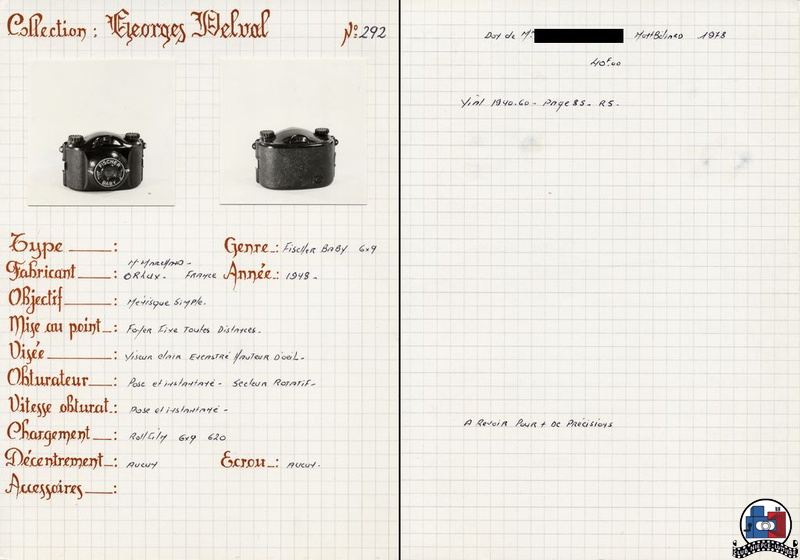 Collection : Georges Delval
N°: 292
FISCHER
BABY
Type :
Genre : Fischer BABY 6x9
H MARCHAND -
Fabricant : ORHUX - FRANCE
Année : 1948 -
Objectif : Menisque Simple.
Mise au point : Foyer Fixe Toutes Distances -
Visée : Viseur clair Encastré Hauteur D'oeil -
Obturateur : Pose et instantané - Secteur Rotatif -
Vitesse obturat : Pose et instantané -
Chargement : Roll Film 6x9 620
Décentrement : AUCUN
Ecrou : AUCUN.
Accessoires :
Don de Mr 1978
40F.00
Vial 1940.60 - Page 85 - R5 -
A Revoir Pour + De Précisions